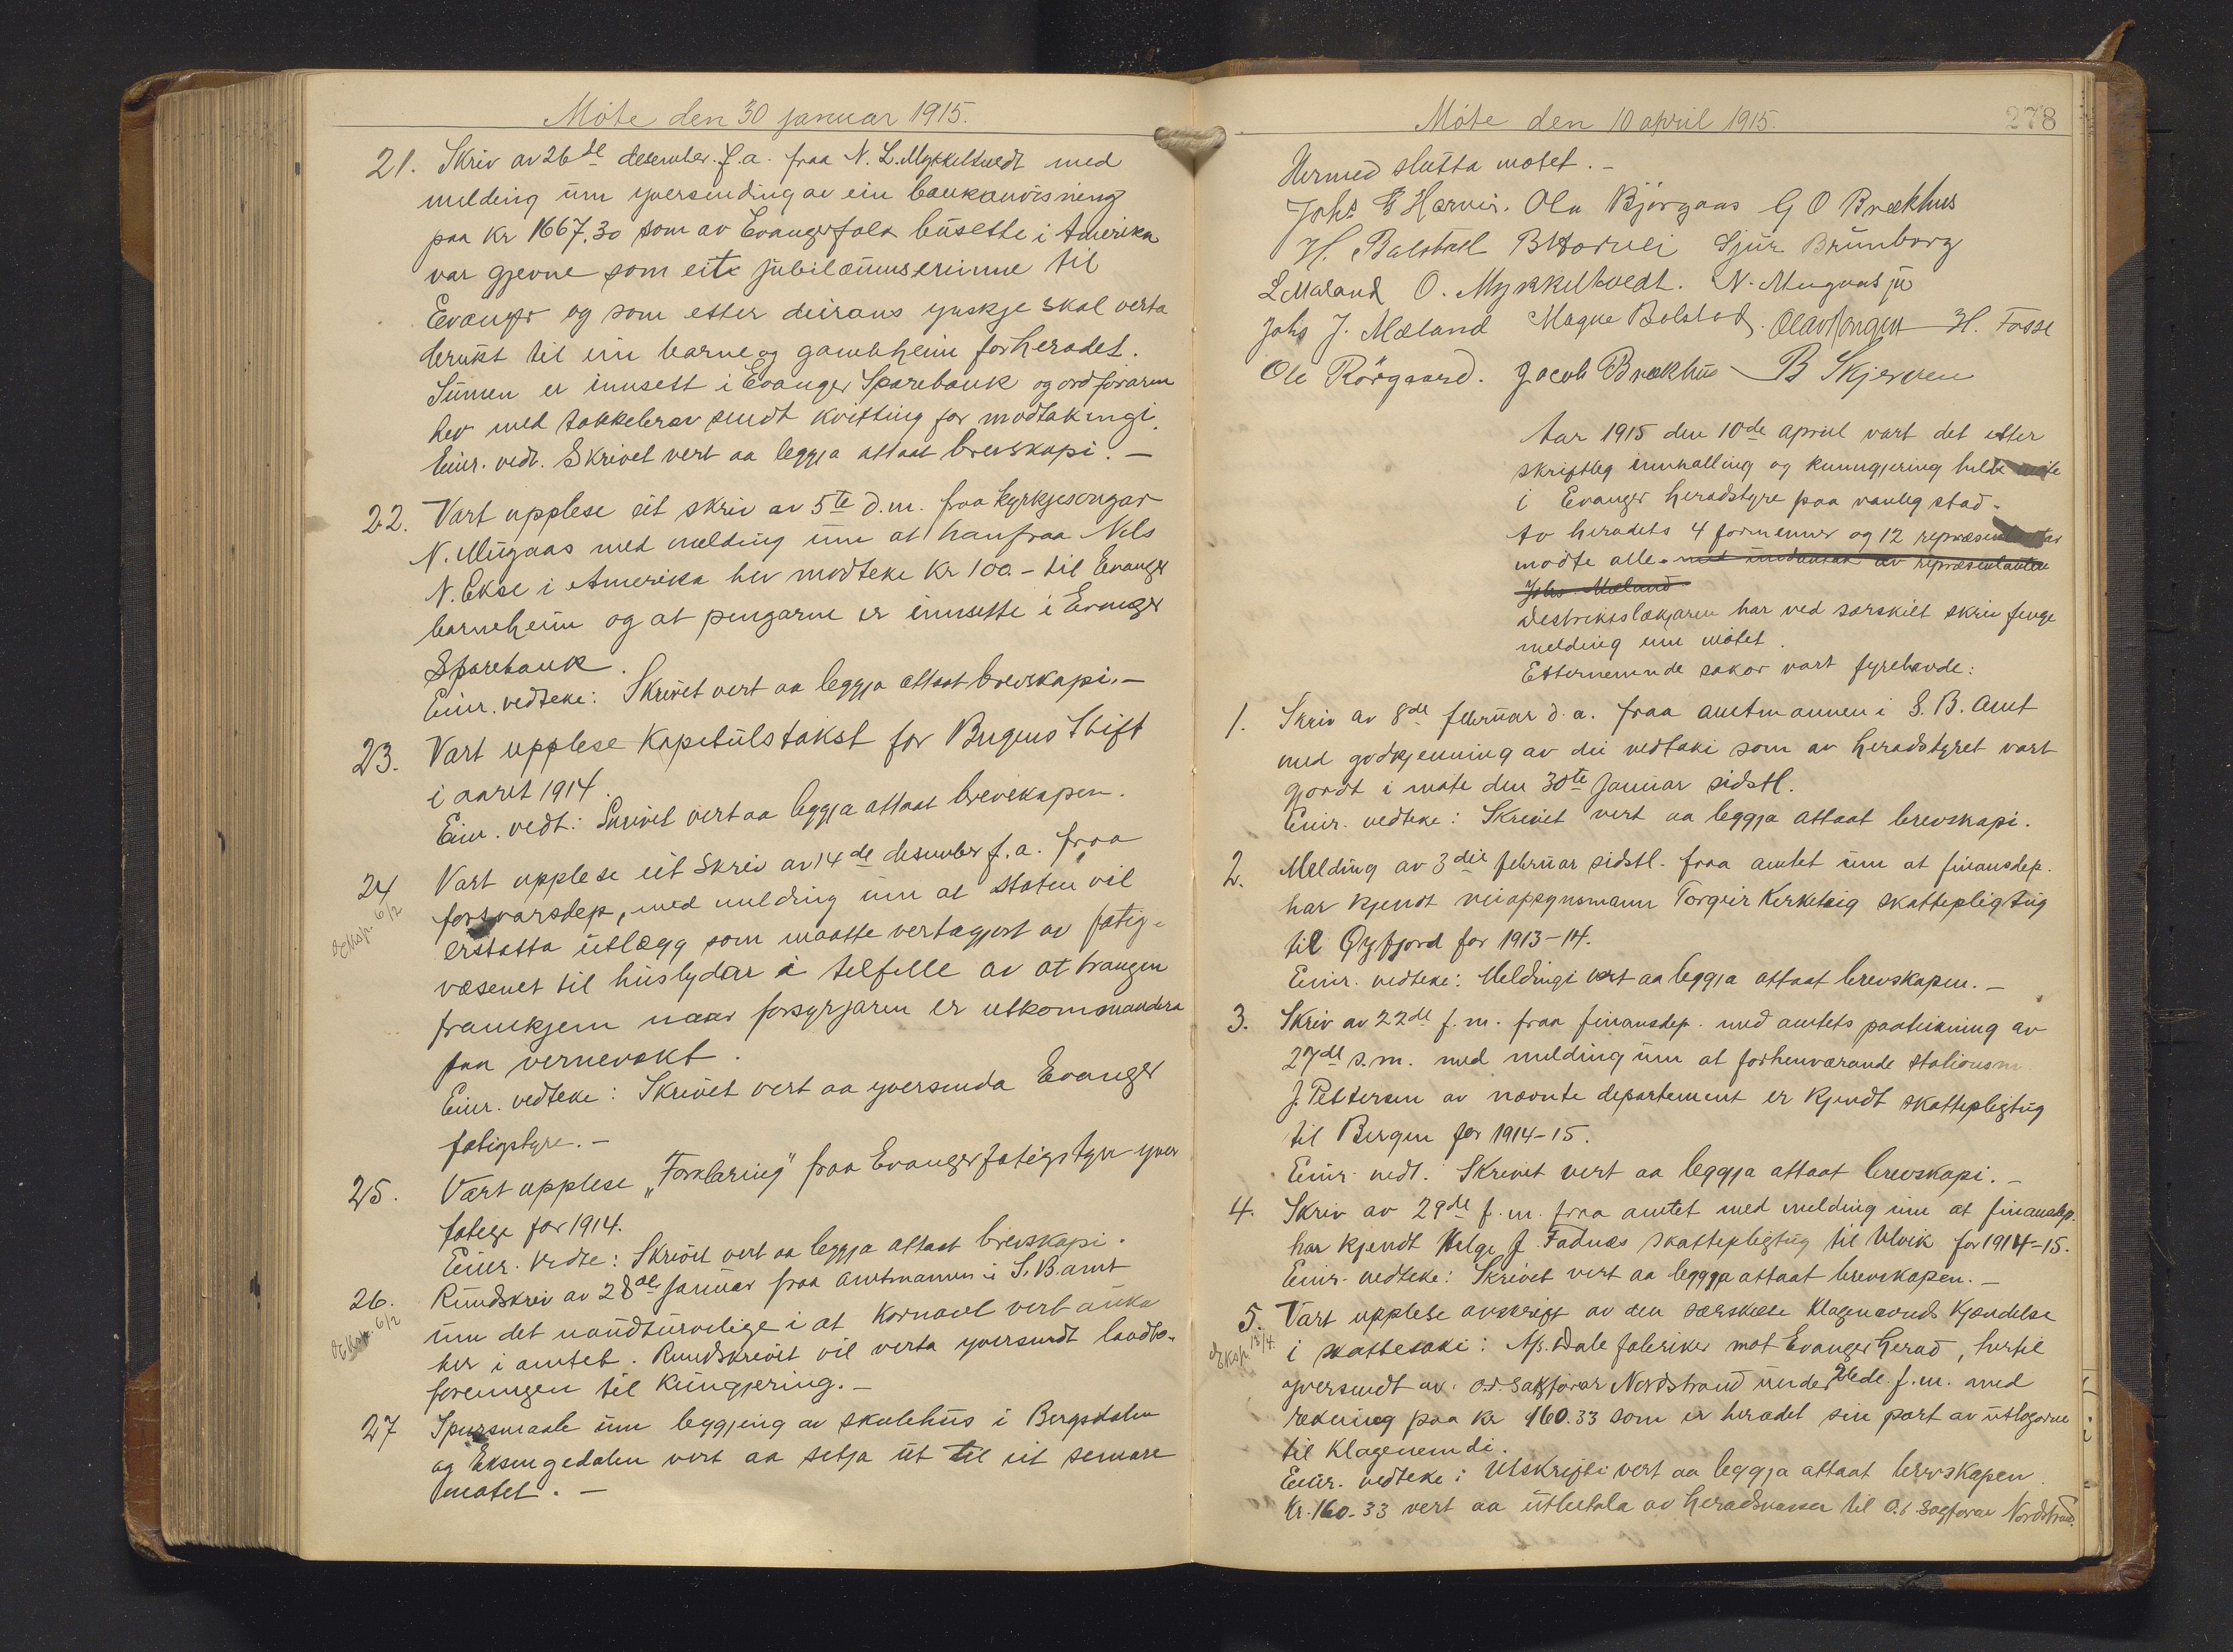 Möte den 30 januar 1915.
21. Skriv av 26de desember f.a. fraa N. L. Mykkeltvedt med
melding um yversending av ein bankanvisning
paa Kr 1667.30 som av Evangerfolk busette i Amerika
var gjevne som eit jubilæumserinne til
Evanger og som etter deirans ynskje skal verta
brukt til ein barne og gamleheim for heradet.
Sumen er innsett i Evanger Sparebank og ordföraren
hev med takkebrev sendt kvitting for modtakingi.
Einr. vedt. Skrivet vert aa leggja attaat brevskapi. –
22. Vart upplese eit skriv av 5te d.m. fraa kyrkjesongar
N. Mugaas med melding um at han fraa Nels
N. Ekse i Amerika hev modteke Kr 100.– til Evanger
barneheim og at pengarne er innsette i Evanger
Sparebank.
Einr. vedteke: Skrivet vert aa leggja attaat brevskapi. –
23. Vart upplese Kapitulstakst for Bergens Stift
i aaret 1914.
Einr. vedt: Skrivet vert aa leggja attaat brevskapen.
24 Vart upplese eit Skriv av 14de desember f.a. fraa
Eksp. 6/2
forsvarsdep, med melding um at staten vil
erstatta utlægg som maatte verta gjort av fatig-
væsenet til huslydar i telfelle av at trangen
framkjem naar forsyrgjaren er utkommandera
paa vernevakt.
Einr. vedteke: Skrivet vert aa yversenda Evanger
fatigstyre. –
25. Vart upplese „Forklaring" fraa Evanger fatigstyre yver
fatige for 1914.
Einr. vedte: Skrivet vert aa leggja attaat brevskapi.
26. Rundskriv av 28de januar fraa amtmannen i S. B. amt
Eksp. 6/2
um det naudturvelige i at Kornavl vert auka
her i amtet. Rundskrivet vil verta yversendt landbo-
foreningen til kungjering. –
27 Spursmaale um byggjing av skulehus i Bergsdalen
og Eksingedalen vert aa setja ut til eit senare
motet. –
Möte den 10 april 1915.
278
Hermed slutta motet. –
Johs E Horvei. Ola Björgaas G O Brækhus
H. Bolstad B Horvei Sjur Brunborg
L Mæland O. Mykkeltvedt. N. Mugaas ju
Johs J. Mæland Magne Bolstad. Olav H. Fosse
Ole Rörgaard. Jacob Brækhus B Skjerven
Aar 1915 den 10de april vart det etter
skriftleg innkalling og kunngjering halde möte
i Evanger heradstyre paa vanleg stad.
Av heradets 4 formenner og 12 representantar
modte alle. med undantak av representanten
Johs Mæland
Destriktslækjaren har ved særskilt skriv fenge
melding um mötet.
Etternemnde sakor vart fyrehavde:
1. Skriv av 8de februar d.a. fraa amtmannen i S. B. Amt
med godkjenning av dei vedtaki som av heradstyret vart
gjordt i møte den 30te Januar sidstl.
Einr. vedteke: Skrivet vert aa leggja attaat brevskapi.
2. Melding av 3die februar sidstl. fraa amtet um at finansdep.
har kjendt veiopsynsmann Torgeir Kirketeig skattepligtug
til Öyfjord for 1913–14.
Einr. vedteke: Meldingi vert aa leggja attaat brevskapen. –
3. Skriv av 22de f.m. fraa finansdep. med amtets paateikning av
27de s.m. med melding um at forhenværande stationsm.
J. Pettersen av nævnte departement er kjendt skattepligtug
til Bergen for 1914–15.
Einr. vedt. Skrivet vert aa leggja attaat brevskapi. –
4. Skriv av 29de f.m. fraa amtet med melding um at finansdep.
har kjendt Helge J. Fadnes skattepligtug til Ulvik for 1914–15.
Einr. vedteke: Skrivet vert aa leggja attaat brevskapen. –
5. Vart upplese avskrift av den særskilte Klagenævnds Kjændelse
Eksp. 15/4.
i skattesaki: A/s. Dale fabriker mot Evanger herad, hertil
yversendt av o.r. sakförar Nordstrand under f.m. med
rekning paa Kr 160.33 som er heradet sin part av utlogorne
til Klagenemdi.
Einr. vedteke: Utskrifti vert aa leggja attaat brevskapen.
Kr. 160.33 vert aa utbetala av heradskassa til o.r sagförar Nordstrand.